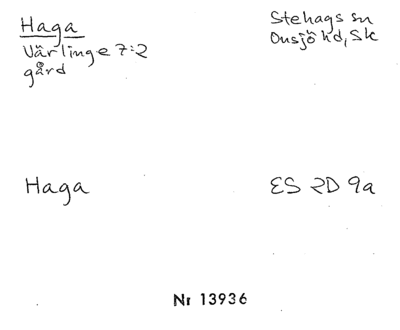 Haga
Värlinge 7:2
gård
Stehags sn
Onsjö hd, Sk
Haga
ES 2D 9a
Nr 13936